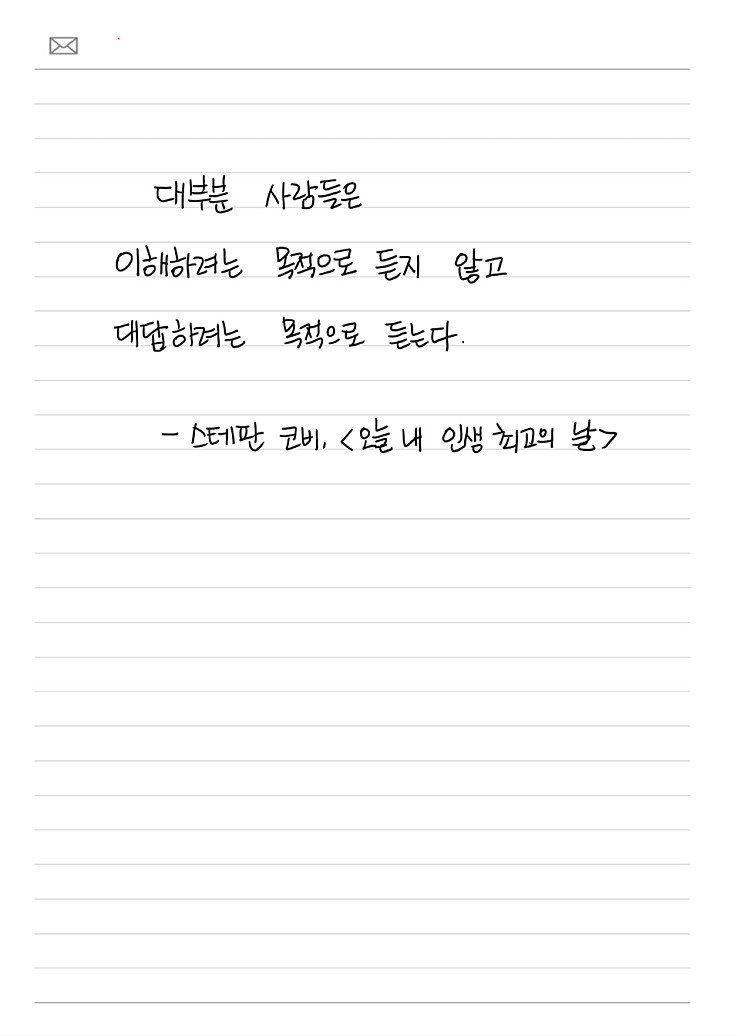 대부분 사람들은
이해하려는 목적으로 듣지 않고
대답하려는 목적으로 듣는다.
- 스테판 코비, <오늘 내 인생 최고의 날>